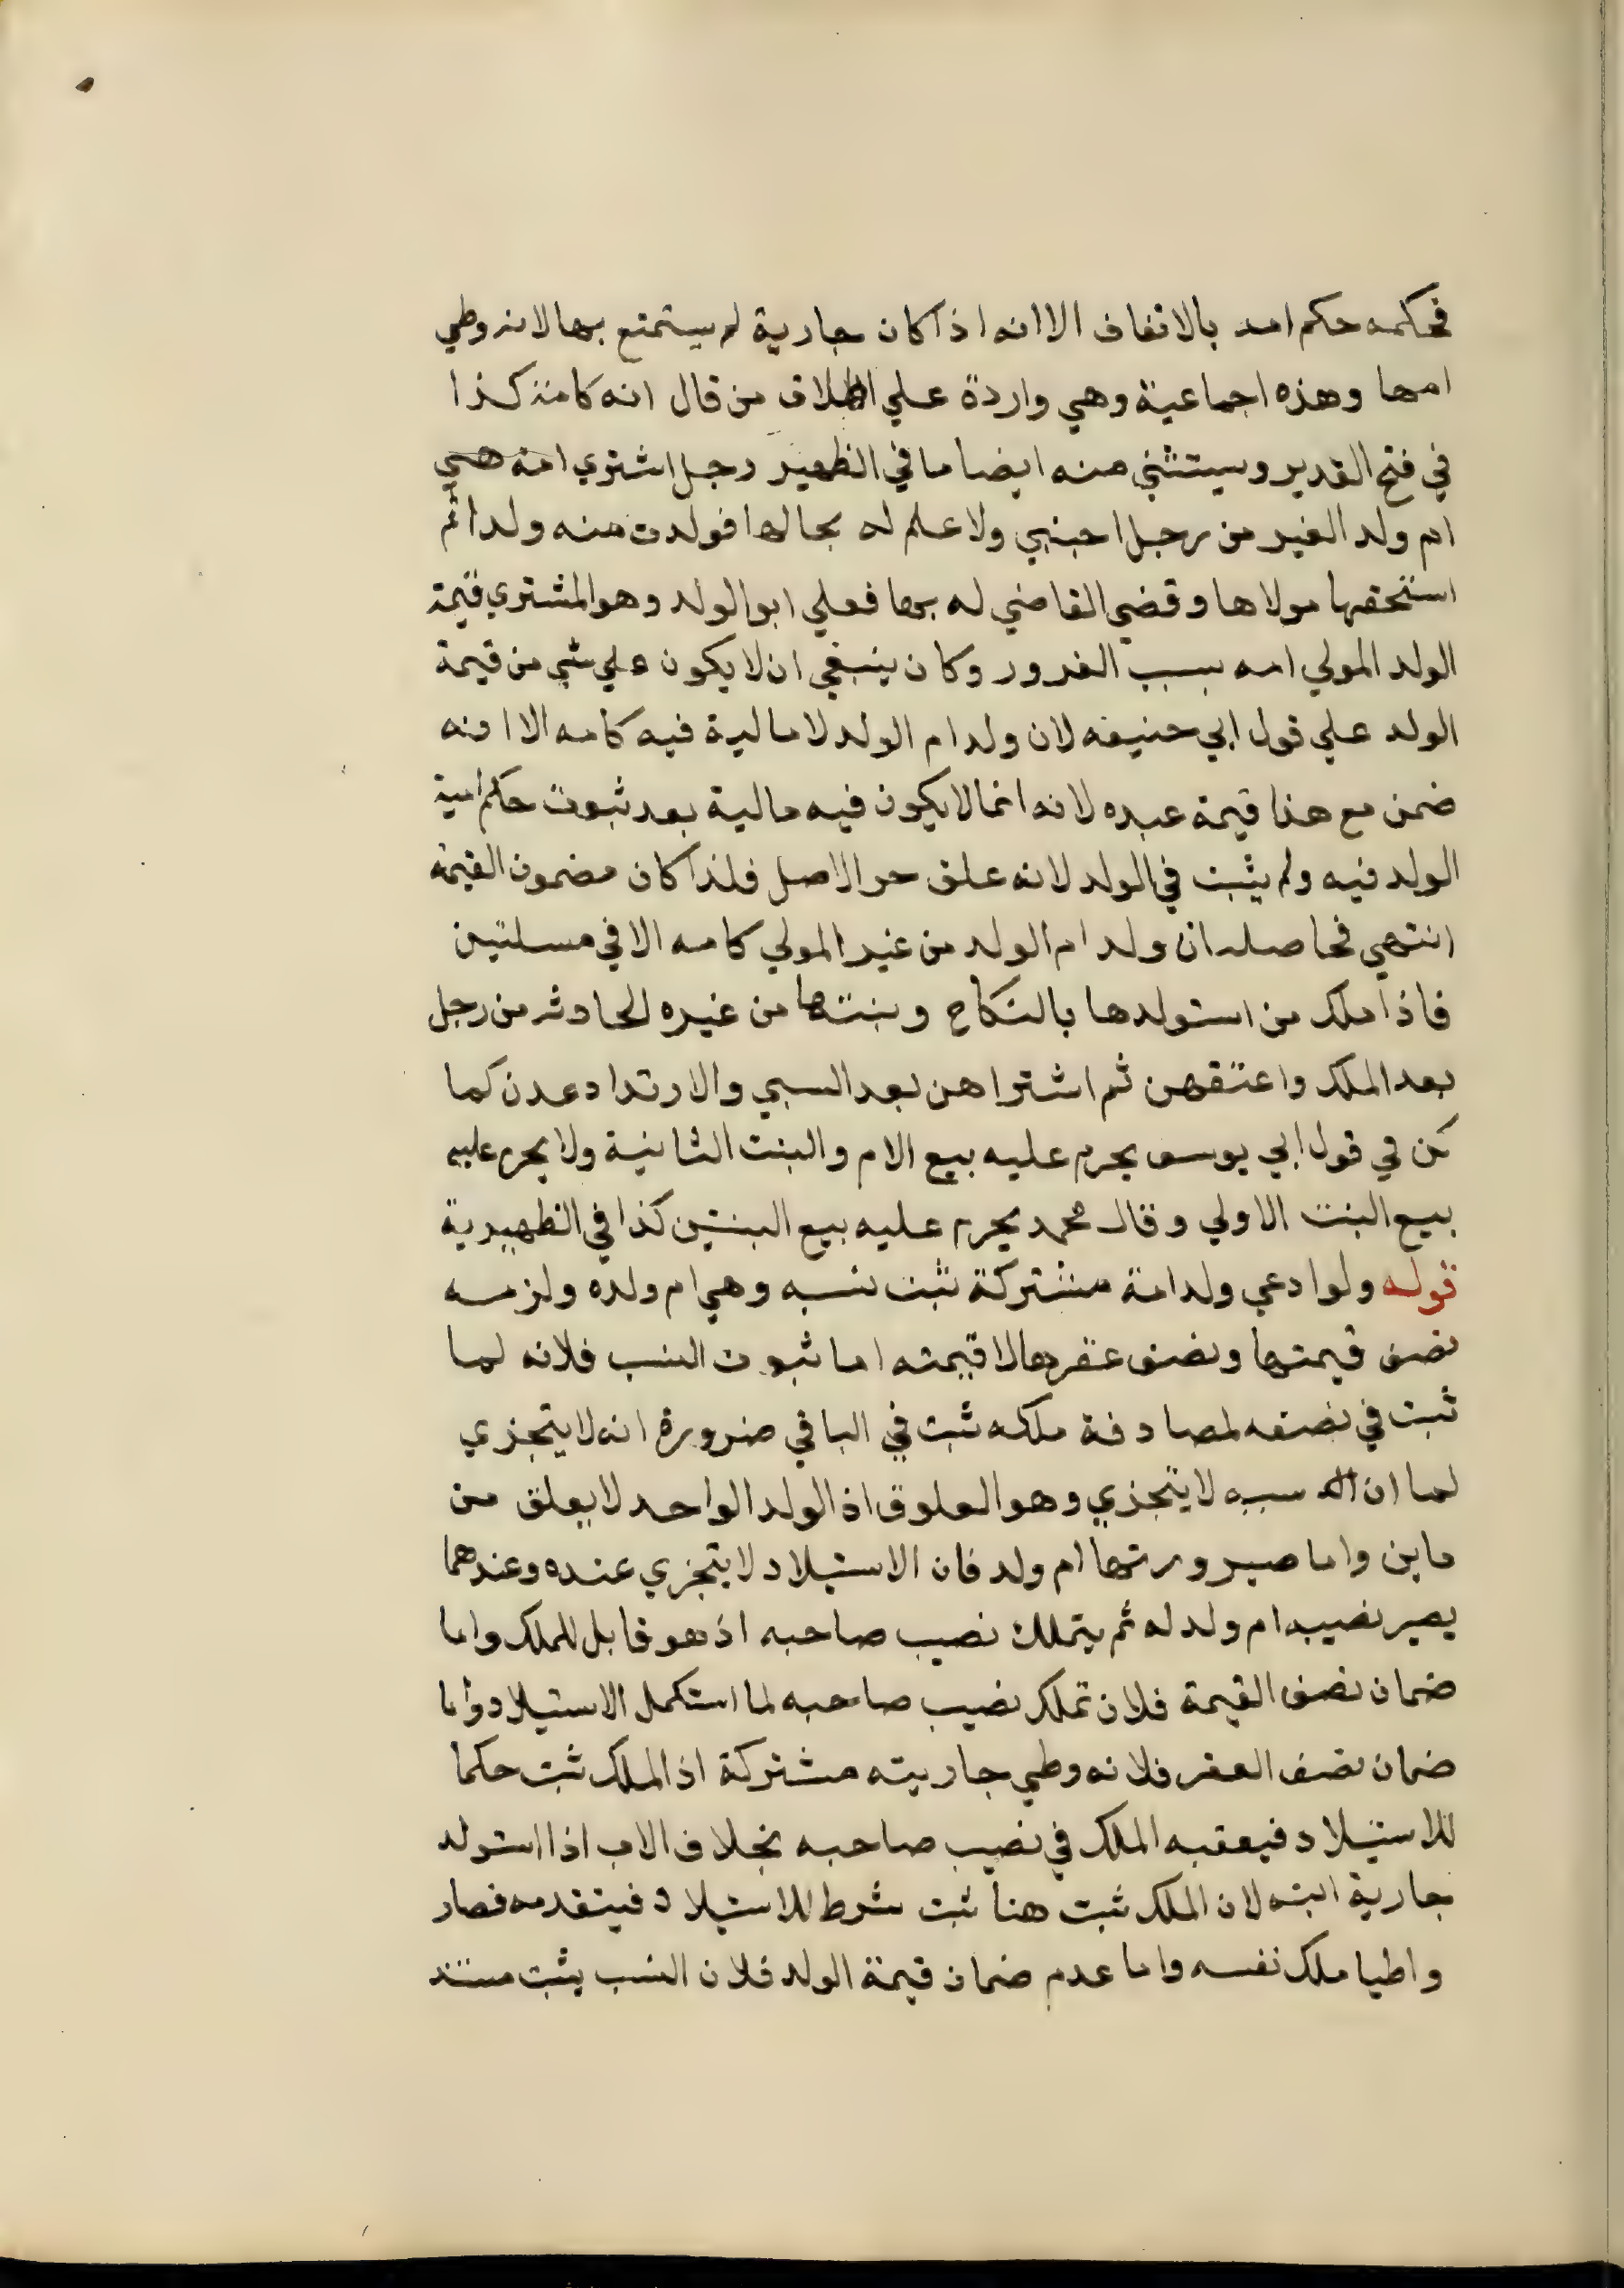 فحكمه حكم امه بالاتفاق الا انه اذا كان جارية لم يستمتع بها لانه وطي
امها وهذه اجماعية وهي واردة علي اطلاق من قال انه كامه كذا
في فتح القدير ويستثني منه ايضا ما في الظهير رجل اشتري امة هي
ام ولد الغير من رجل اجنبي ولا علم له بحالها فولدت منه ولدا ثم
استحقها مولاها وقضي القاضي له بها فعلي ابو الولد وهو المشتري قيمة
الولد المولي امه بسبب الغرور وكان ينبغي ان لا يكون علي شي من قيمة
الولد علي قول ابي حنيفه لان ولد ام الولد لا مالية فيه كامه الا انه
ضمن مع هذا قيمة عبده لانه انما لا يكون فيه مالية بعد ثبوت حكم امية
الولد فيه ولم يثبت في الولد لانه علق حر الاصل فلذا كان مضمون القيمة
انتهي فحاصله ان ولد ام الولد من غير المولي كامه الا في مسلتين
فاذا ملك من استولدها بالنكاح وبنتها من غيره الحادثه من رجل
بعد الملك واعتقهن ثم اشتراهن بعد السبي والارتداد عدن كما
كن في قول ابي يوسف يحرم عليه بيع الام والبنت الثانية ولا يحرم عليه
بيع البنت الاولي وقال محمد يحرم عليه بيع البنتين كذا في الظهيرية
قوله ولو ادعي ولد امة مشتركة ثبت نسبه وهي ام ولده ولزمه
نصف قيمتها ونصف عقرها لا قيمته اما ثبوت النسب فلانه لما
ثبت في نصفه لمصادفة ملكه ثبت في الباقي ضرورة انه لا يتجزي
لما ان سببه لا يتجزي وهو العلوق اذ الولد الواحد لا يعلق من
ماين واما صيرورتها ام ولد فان الاستيلاد لا يتجزي عنده وعندهما
يصير نصيبه ام ولد له ثم يتملك نصيب صاحبه اذ هو قابل للملك واما
ضمان نصف القيمة فلان تملك نصيب صاحبه لما استكمل الاستيلاد واما
ضمان نصف العقر فلانه وطي جاريته مشتركة اذ الملك ثبت حكما
للاستيلاد فيعقبه الملك في نصيب صاحبه بخلاف الاب اذا استولد
جارية ابنه لان الملك ثبت هنا ثبت شرط للاستيلاد فيتقدمه فصار
واطيا ملك نفسه واما عدم ضمان قيمة الولد فلان النسب يثبت مستند